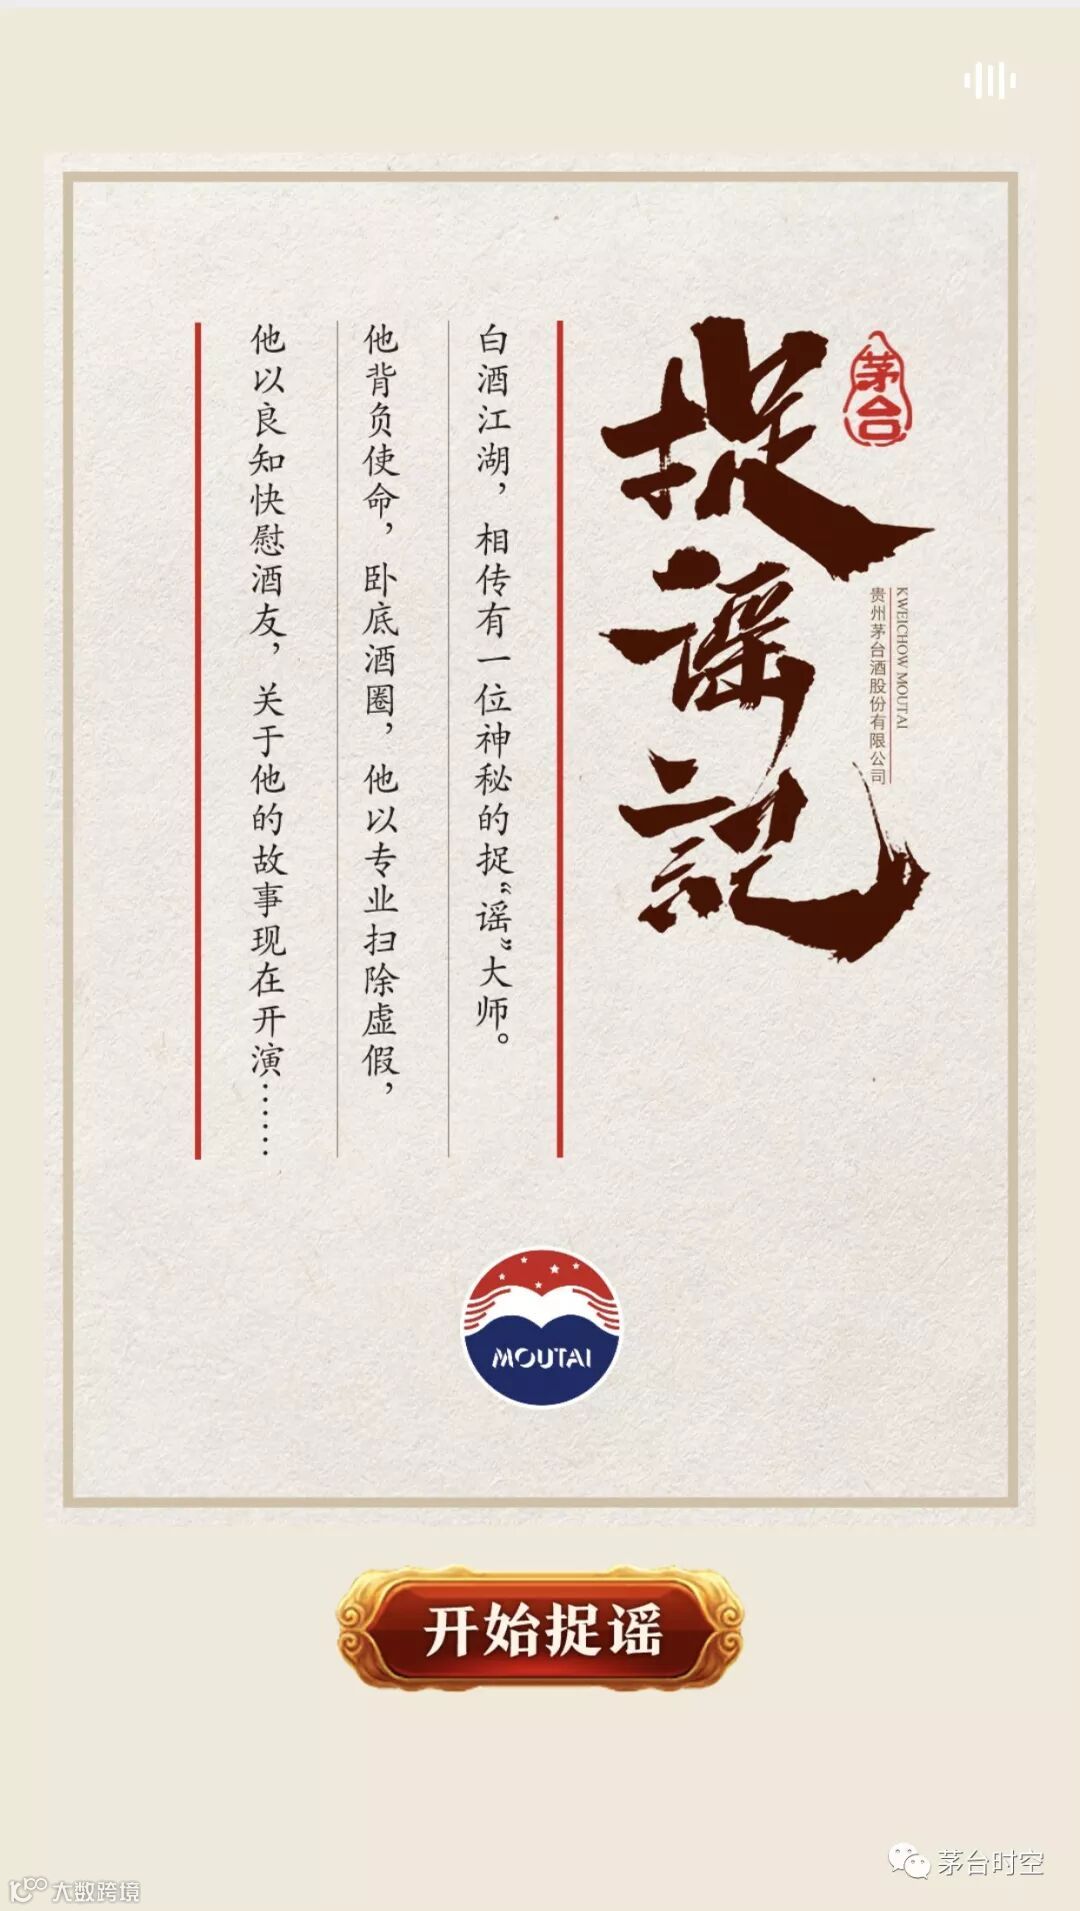 茅台
捉谣记
KWEICHOW MOUTAI
贵州茅台酒股份有限公司
白酒江湖，相传有一位神秘的捉“谣”大师。
他背负使命，卧底酒圈，他以专业扫除虚假，
他以良知快慰酒友，关于他的故事现在开演……
MOUTAI
开始捉谣
茅台时空
大数跨境